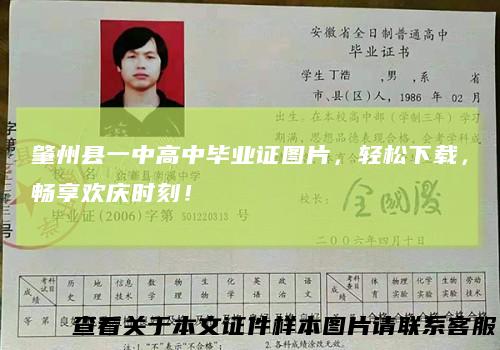 安徽省全日制普通高中
毕业证书
学生丁浩，男，系 省
市、县(区)人，1986年02月
出生。在本校高中部（学制三年）学习
期满，思想品德表现合格，会考学科成
肇州县一中高中毕业证图片，轻松下载，
畅享欢庆时刻！
县南溪中学
校长：
毕业证(2006)字第 501220313 号
二００六年四月十日
成绩 考科目试 历史 地理 信息技术 数学 物理 生物 化学 英语 政治 语文
成绩 考查科目 体育 物理实验 化学实验 生物实验 劳动技术
等第
查看关于本文证件样本图片请联系客服
注:1."不"表示"不合格"；
2.各科成绩涂改无效。